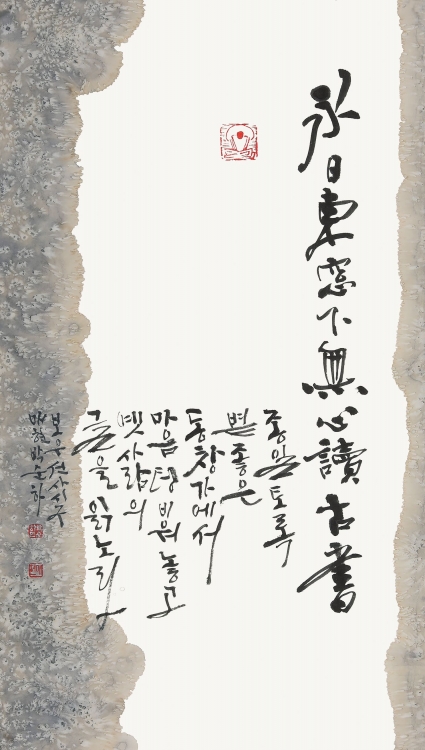 永日東窓下無心讀古書
종일토록
볕좋은
동창가에서
마음텅비워놓고
옛사람의
글을읽노라
보우선사시구